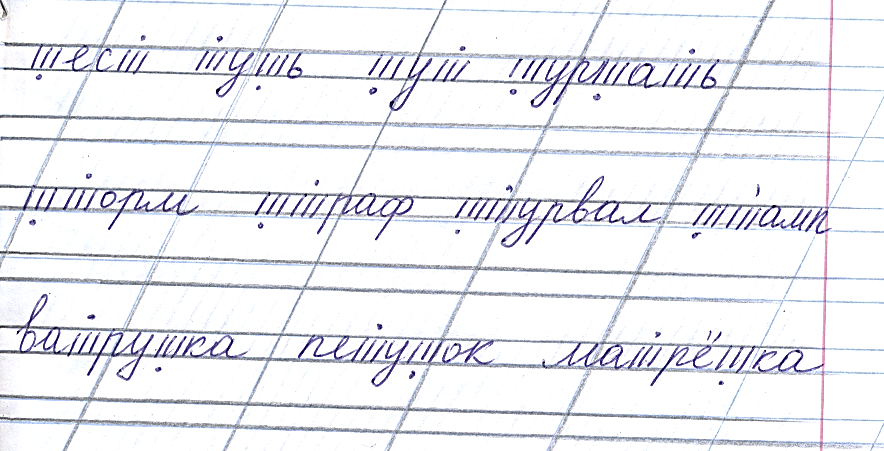 шест тушь шут шуршать
шторм штраф штурвал штамп
ватрушка петушок матрёшка